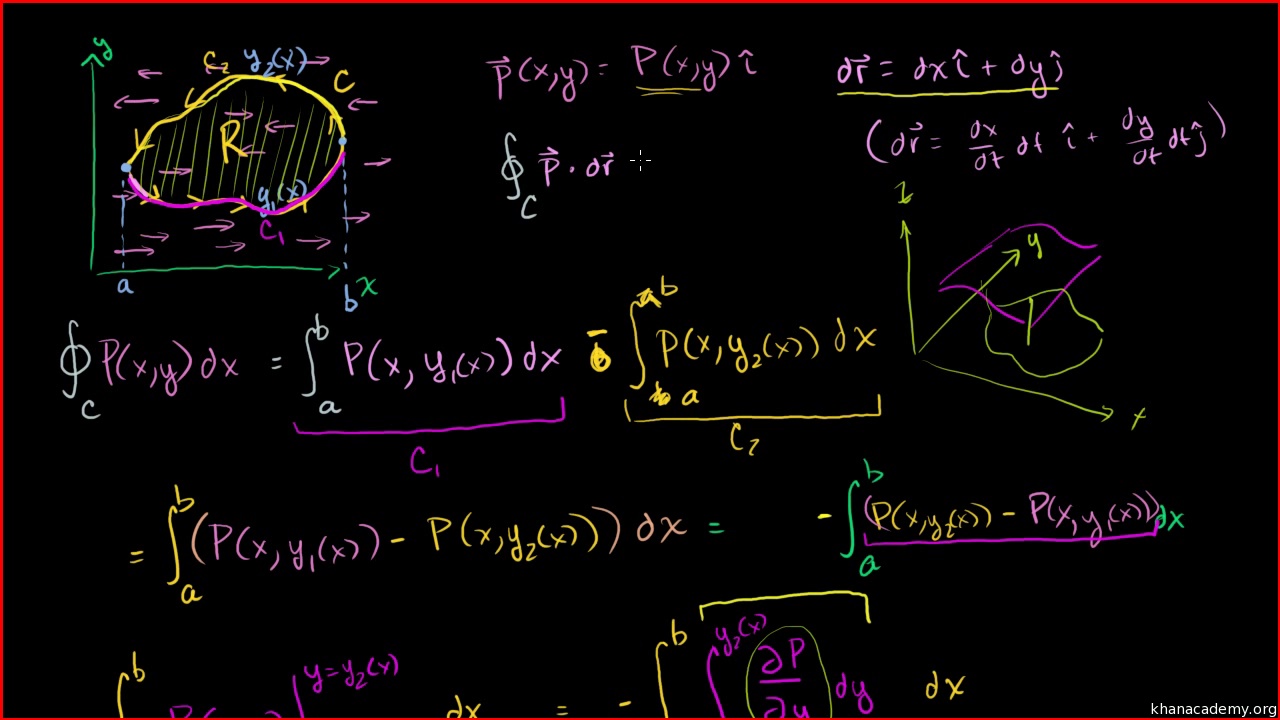 y
C₂ y₂(x)
C
R
y₁(x)
C₁
a b x
P⃗(x,y) = P(x,y) î
dr⃗ = dx î + dy ĵ
(dr⃗ = dx/dt dt î + dy/dt dt ĵ)
∮_C P⃗ · dr⃗
z
y
x
∮_C P(x,y) dx = ∫_a^b P(x, y₁(x)) dx - ∫_a^b P(x, y₂(x)) dx
C₁ C₂
= ∫_a^b (P(x, y₁(x)) - P(x, y₂(x))) dx = - ∫_a^b (P(x, y₂(x)) - P(x, y₁(x))) dx
b y=y₂(x) dx = - ∫^b ∫^{y₂(x)} ∂P/∂y dy dx
khanacademy.org